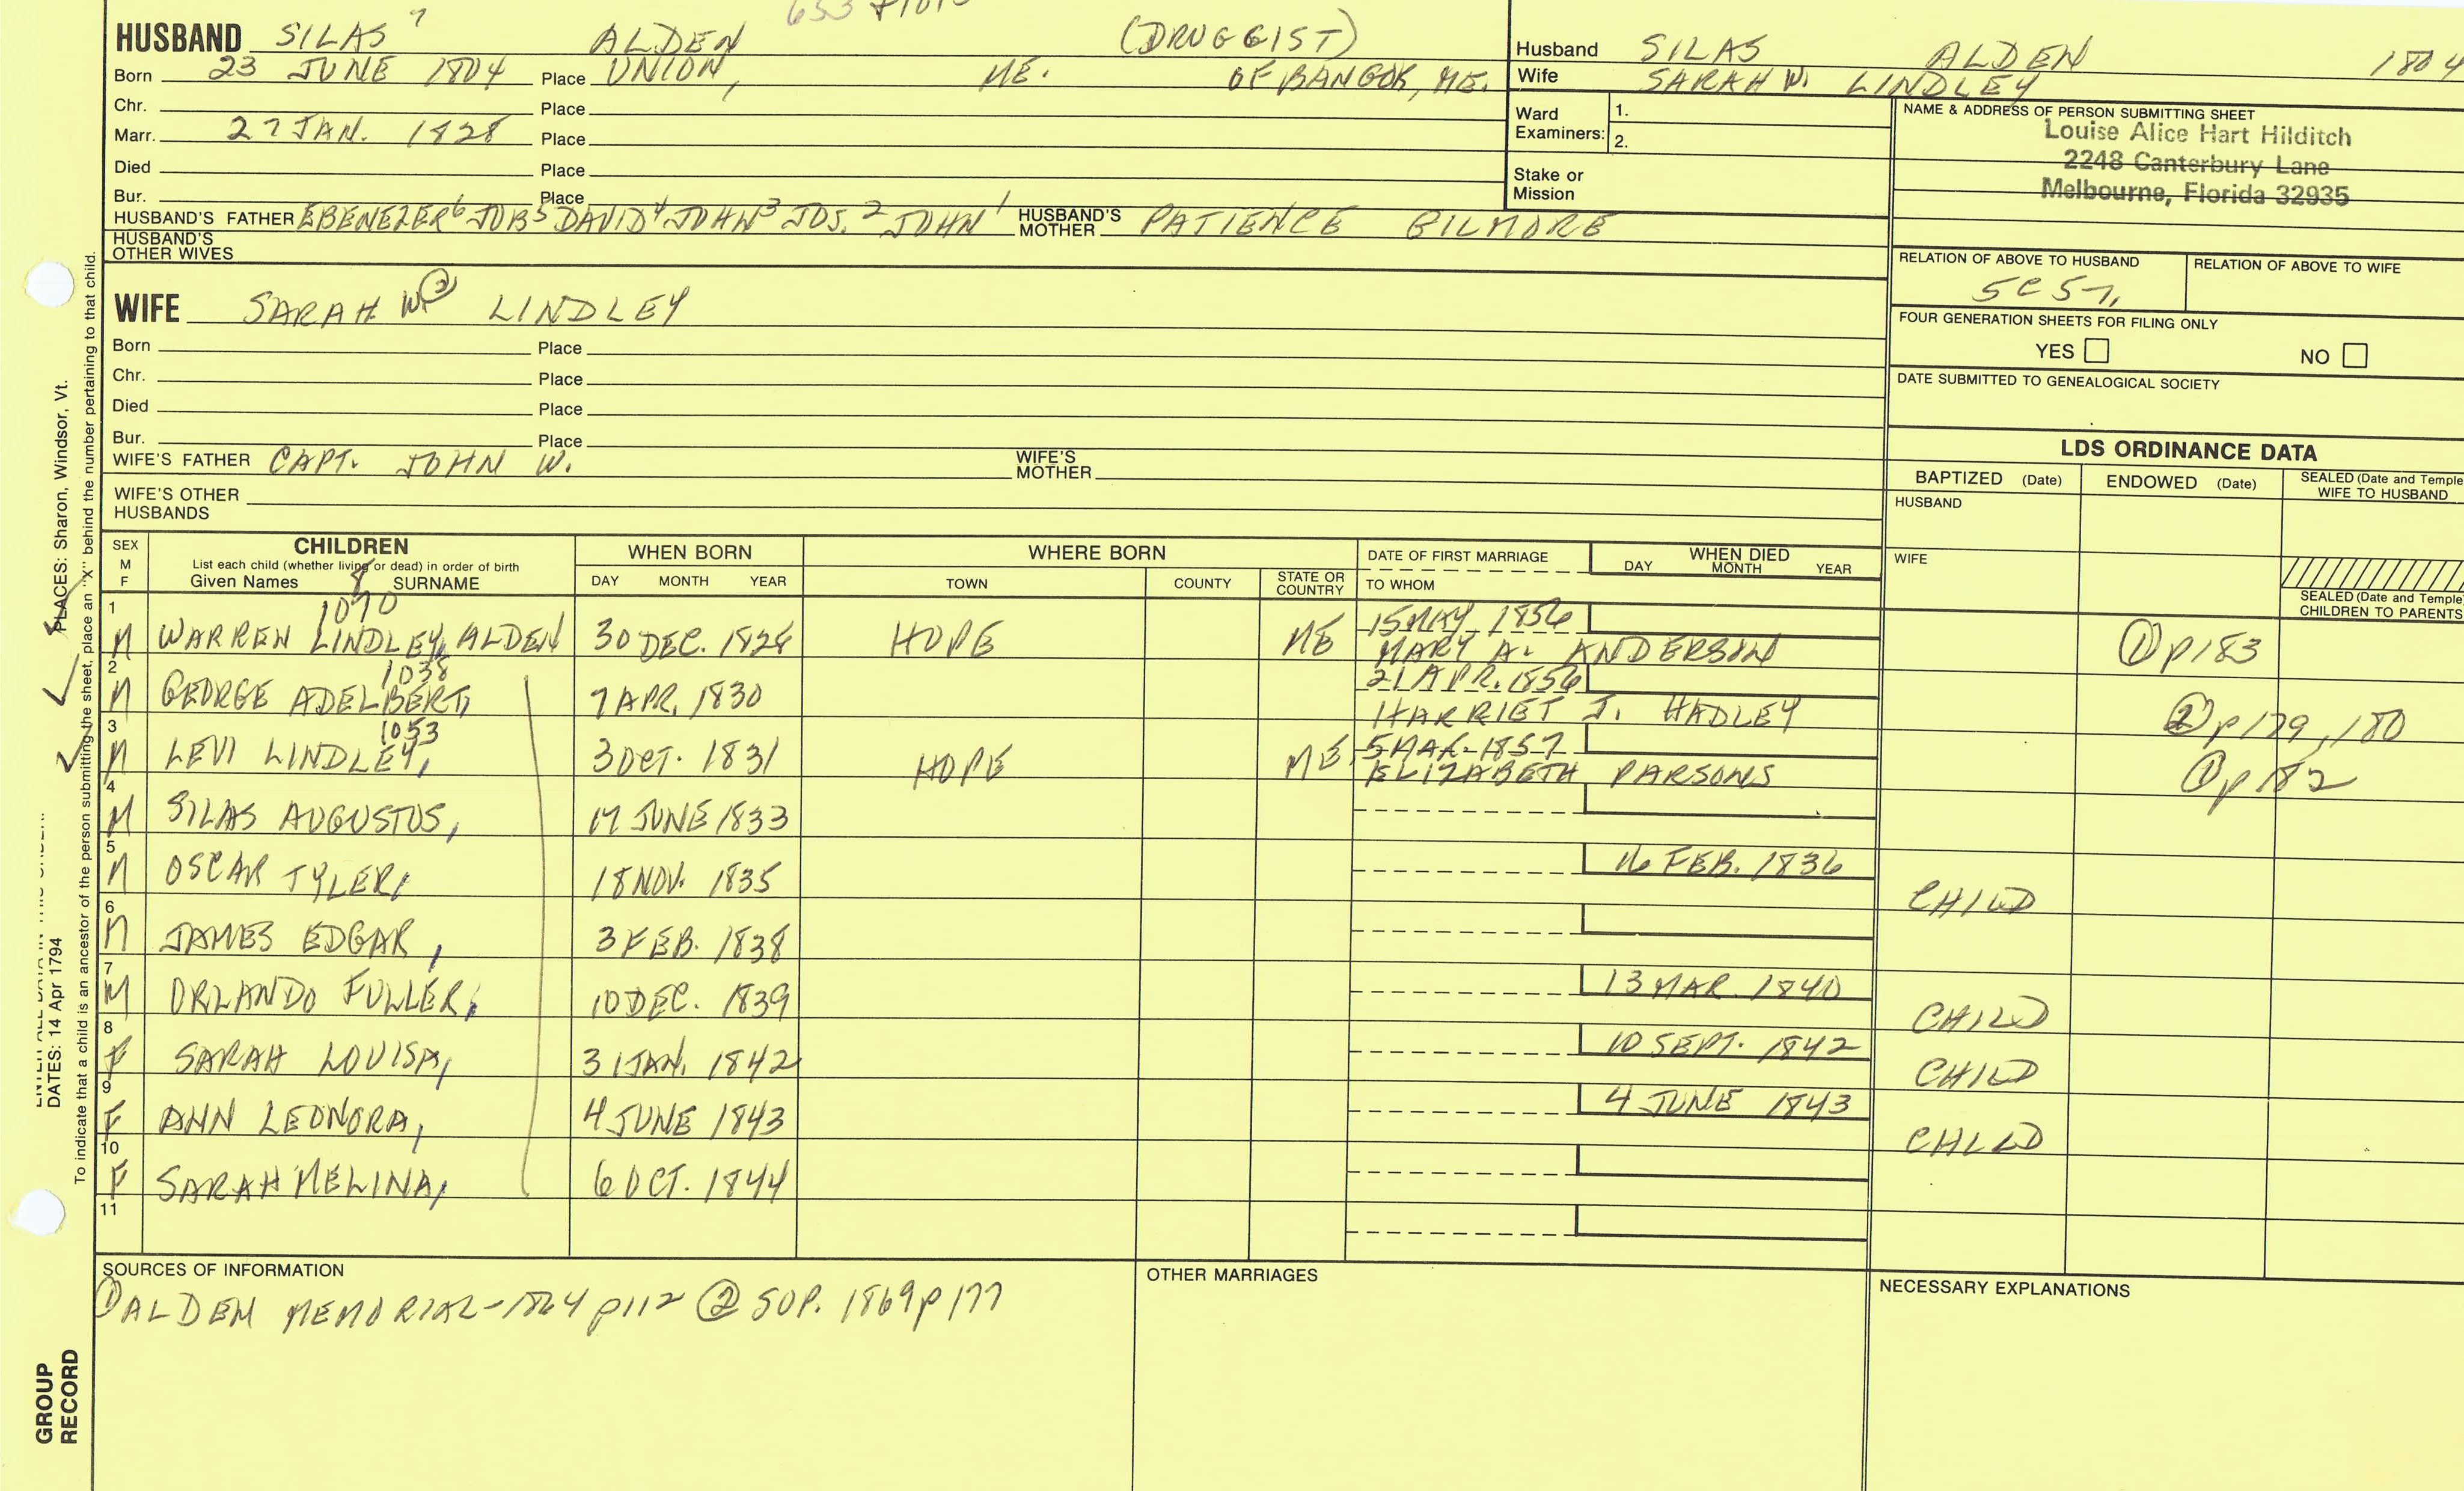 HUSBAND SILAS 7 ALDEN (DRUGGIST)
Born 23 JUNE 1804 Place UNION, ME. OF BANGOR, ME.
Chr. Place
Marr. 27 JAN. 1828 Place
Died Place
Bur. Place
HUSBAND'S FATHER EBENEZER 6 JOB 5 DAVID 4 JOHN 3 JOS. 2 JOHN 1 HUSBAND'S MOTHER PATIENCE GILMORE
HUSBAND'S OTHER WIVES
WIFE SARAH W. ② LINDLEY
Born Place
Chr. Place
Died Place
Bur. Place
WIFE'S FATHER CAPT. JOHN W. WIFE'S MOTHER
WIFE'S OTHER HUSBANDS
Husband SILAS ALDEN 1804
Wife SARAH W. LINDLEY
Ward Examiners: 1.
2.
Stake or Mission
NAME & ADDRESS OF PERSON SUBMITTING SHEET
Louise Alice Hart Hilditch
2248 Canterbury Lane
Melbourne, Florida 32935
RELATION OF ABOVE TO HUSBAND RELATION OF ABOVE TO WIFE
FOUR GENERATION SHEETS FOR FILING ONLY
YES NO
DATE SUBMITTED TO GENEALOGICAL SOCIETY
LDS ORDINANCE DATA
BAPTIZED (Date) ENDOWED (Date) SEALED (Date and Temple WIFE TO HUSBAND
HUSBAND
WIFE
SEALED (Date and Temple CHILDREN TO PARENTS
SEX M F CHILDREN WHEN BORN WHERE BORN DATE OF FIRST MARRIAGE WHEN DIED
List each child (whether living or dead) in order of birth
Given Names 8 SURNAME DAY MONTH YEAR TOWN COUNTY STATE OR COUNTRY TO WHOM DAY MONTH YEAR
1070
1 M WARREN LINDLEY, ALDEN 30 DEC. 1828 HOPE ME 15 MAY 1856 MARY A. ANDERSON ① p183
1038
2 M GEORGE ADELBERT, 7 APR. 1830 21 APR. 1856 HARRIET J. HADLEY ② p179, 180
1053
3 M LEVI LINDLEY, 3 OCT. 1831 HOPE ME 5 MAR. 1857 ELIZABETH PARSONS ① p182
4 M SILAS AUGUSTUS, 17 JUNE 1833
5 M OSCAR TYLER, 18 NOV. 1835 16 FEB. 1836 CHILD
6 M JAMES EDGAR, 3 FEB. 1838
7 M ORLANDO FULLER, 10 DEC. 1839 13 MAR. 1840 CHILD
8 F SARAH LOUISA, 31 JAN. 1842 10 SEPT. 1842 CHILD
9 F ANN LEONORA, 4 JUNE 1843 4 JUNE 1843 CHILD
10 F SARAH MELINA, 6 OCT. 1844
11
SOURCES OF INFORMATION OTHER MARRIAGES NECESSARY EXPLANATIONS
① ALDEN MEMORIAL-1864 p112 ② SUP. 1869 p177
PLACES: Sharon, Windsor, Vt.
DATES: 14 Apr 1794
To indicate that a child is an ancestor of the person submitting the sheet, place an "X" behind the number pertaining to that child.
GROUP RECORD